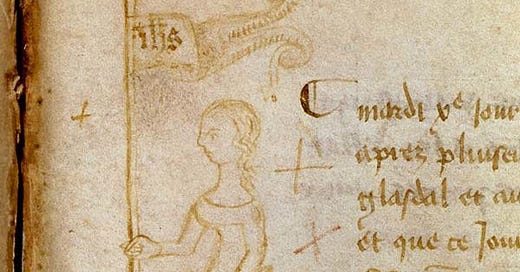 ihs
Mardi xe jour
aprez pluiseu
glasdal et au
et que ce jour